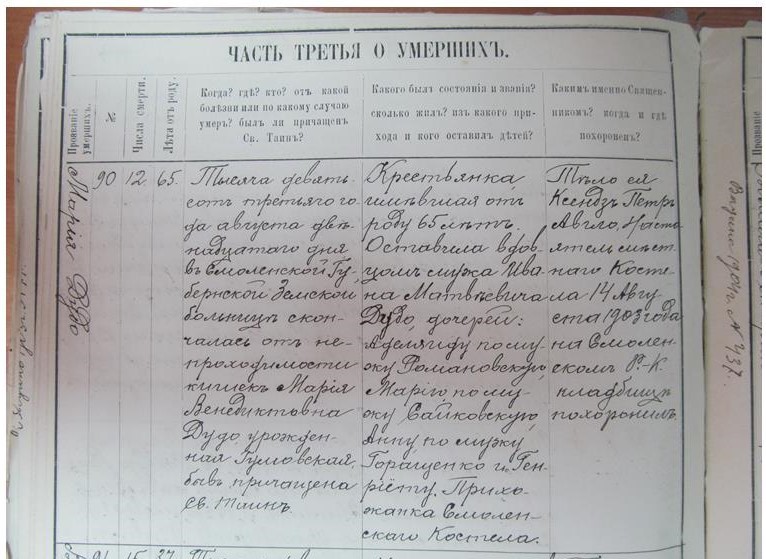 ЧАСТЬ ТРЕТЬЯ О УМЕРШИХЪ.
Прозваніе умершихъ.
№
Числа смерти.
Лѣта отъ роду.
Когда? гдѣ? кто? отъ какой
болѣзни или по какому случаю
умеръ? былъ ли причащенъ
Св. Таинъ?
Какого былъ состоянія и званія?
сколько жилъ? изъ какого при-
хода и кого оставилъ дѣтей?
Какимъ именно Священ-
никомъ? когда и гдѣ
похороненъ?
Марія Дудо
90
12
65.
Тысяча девять-
сотъ третьяго го-
да августа двѣ-
надцатаго дня
въ Смоленской Гу-
бернской Земской
больницѣ скон-
чалась отъ не-
проходимости
кишекъ Марія
Венедиктовна
Дудо, урожден-
ная Гумовская,
бывъ причащена
Св. Таинъ.
Крестьянка,
имѣвшая отъ
роду 65 лѣтъ.
Оставила вдов-
цомъ мужа Ива-
на Матвѣевича
Дудо, дочерей:
Аделягиду по му-
жу Романовскую,
Марію по му-
жу Сайковскую,
Анну по мужу
Горащенко и Ген-
ріету. Прихо-
жанка Смолен-
скаго Костела.
Тѣло ея
Ксендзъ Петръ
Авгло, Насто-
ятель мѣст-
наго Косте-
ла 14 Авгу-
ста 1903 года
на Смолен-
скомъ Р.-К.
кладбищѣ
похоронилъ.
91
15
Прозваніе
1904 г. № 437.